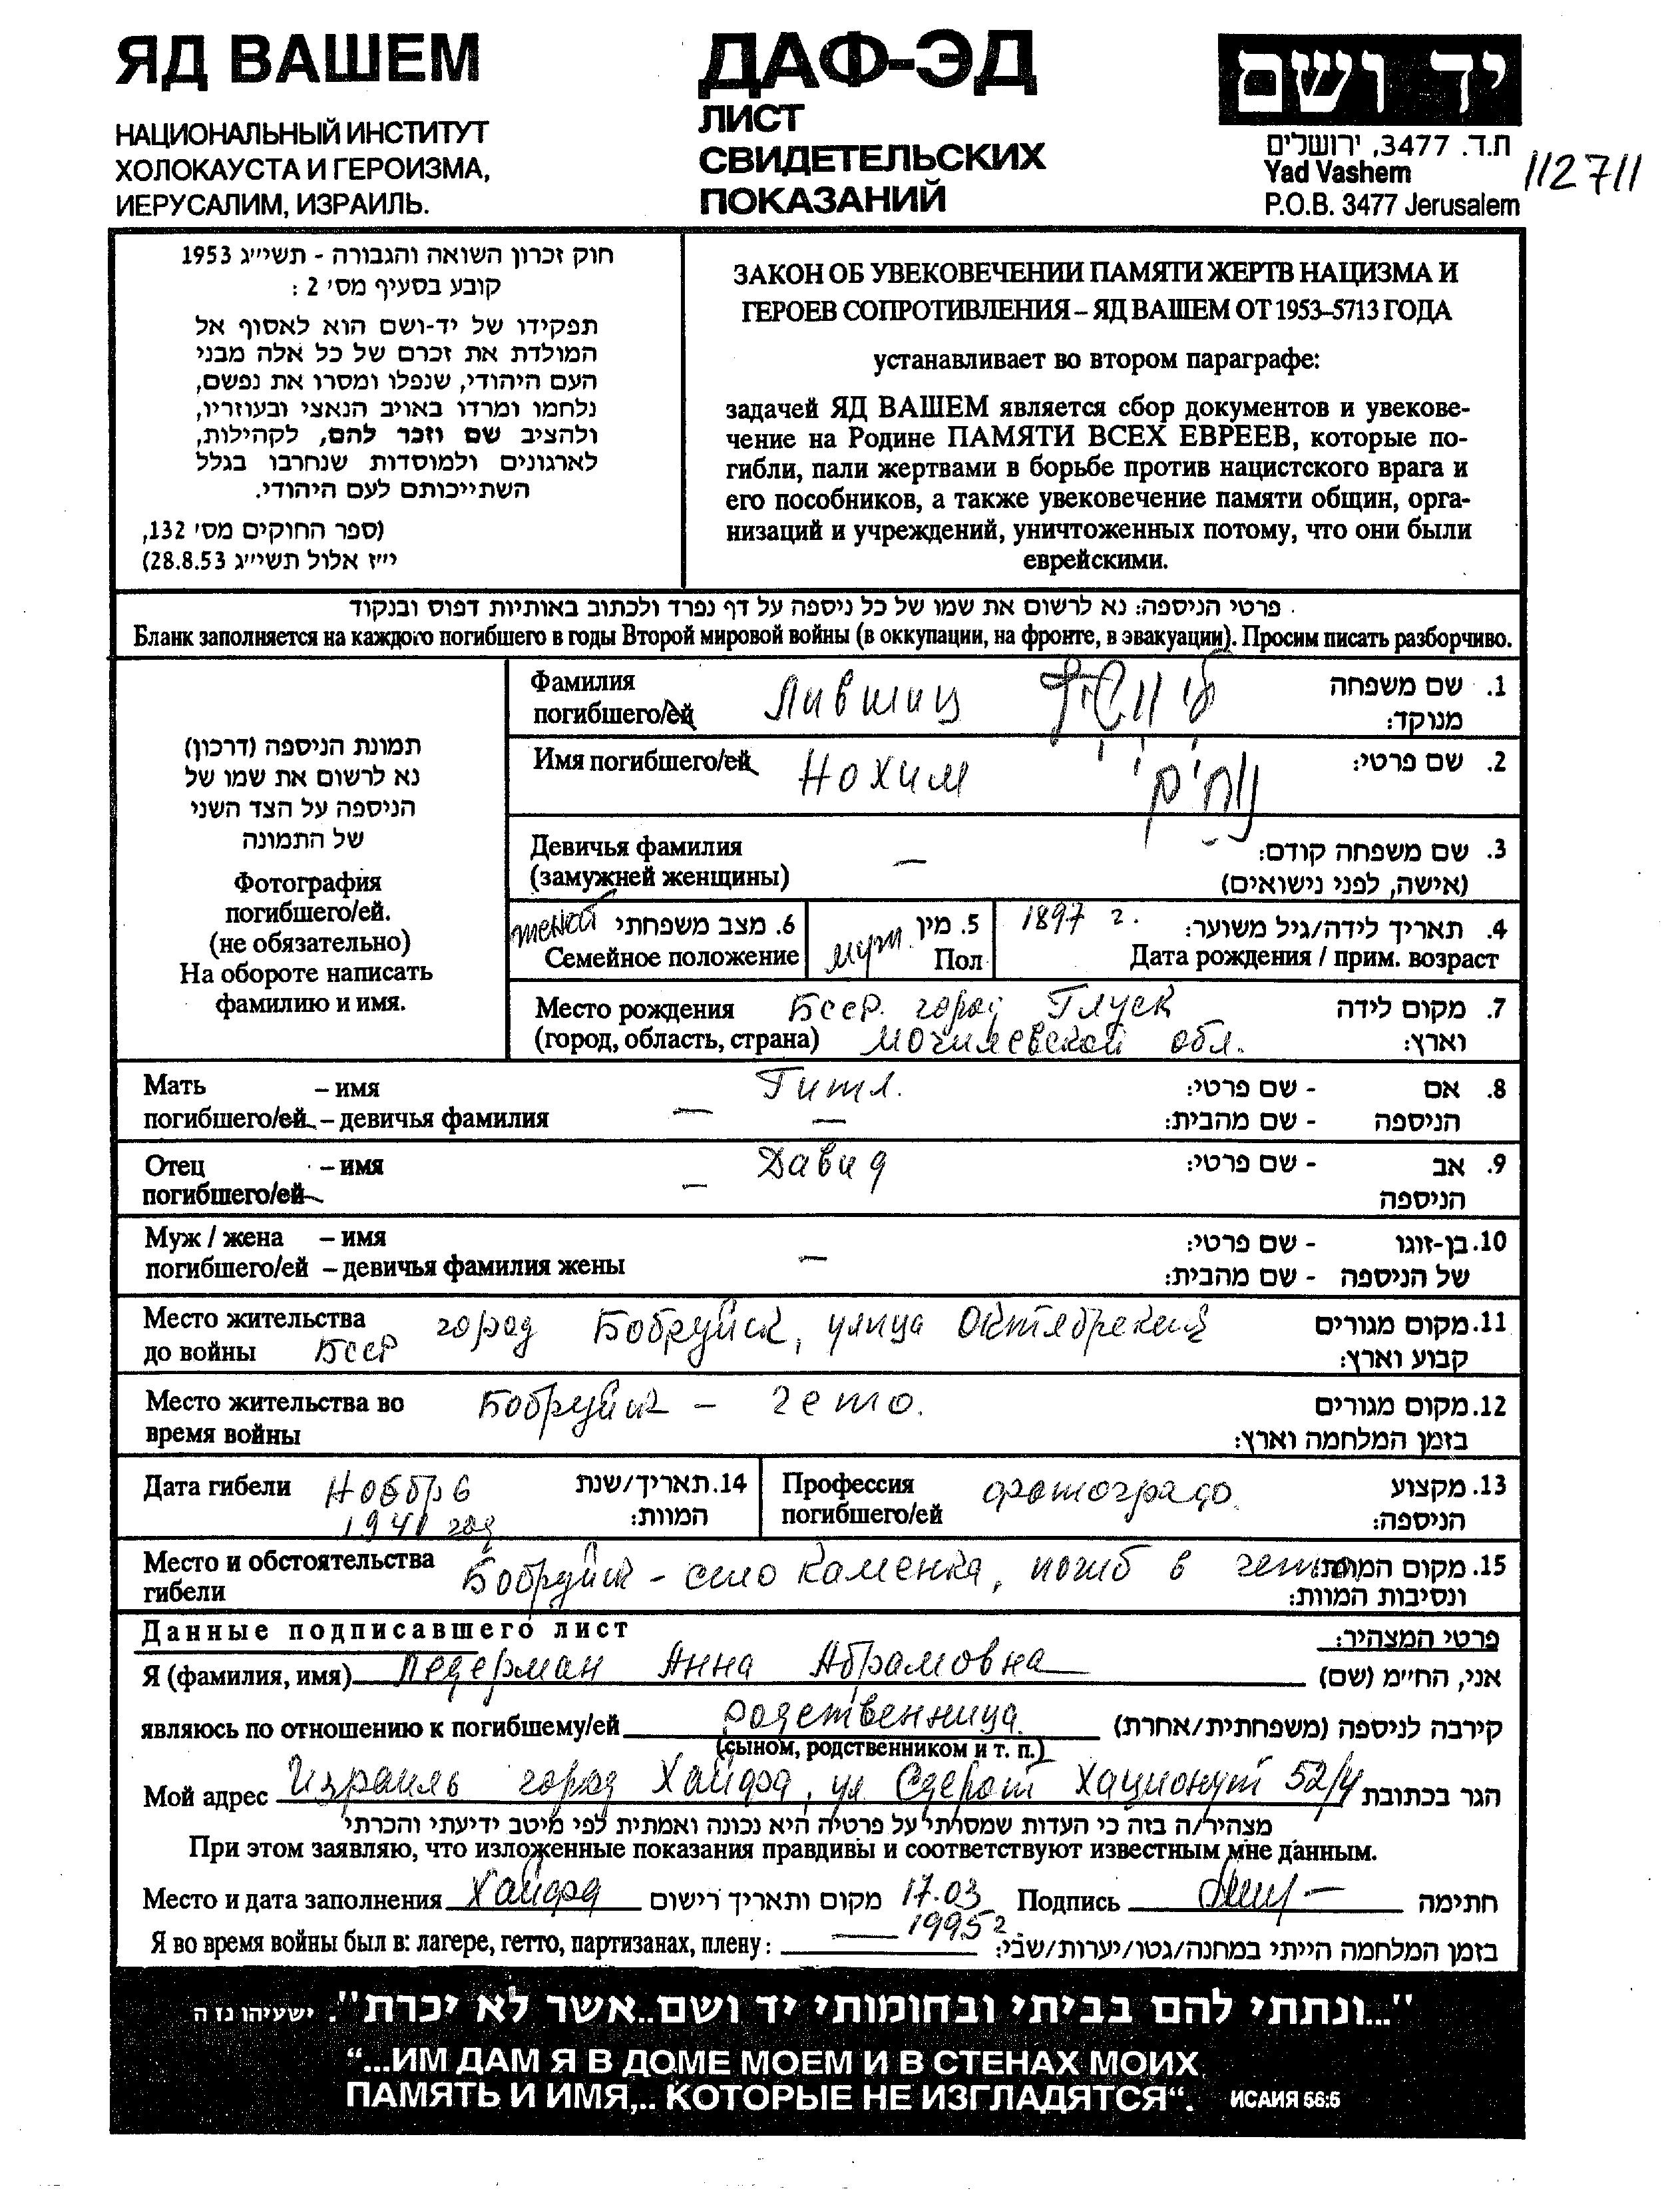 ЯД ВАШЕМ
НАЦИОНАЛЬНЫЙ ИНСТИТУТ
ХОЛОКАУСТА И ГЕРОИЗМА,
ИЕРУСАЛИМ, ИЗРАИЛЬ.
ДАФ-ЭД
ЛИСТ
СВИДЕТЕЛЬСКИХ
ПОКАЗАНИЙ
יד ושם
ת.ד. 3477, ירושלים
Yad Vashem
P.O.B. 3477 Jerusalem
112711
חוק זכרון השואה והגבורה - תשי״ג 1953
קובע בסעיף מס׳ 2 :
תפקידו של יד-ושם הוא לאסוף אל
המולדת את זכרם של כל אלה מבני
העם היהודי, שנפלו ומסרו את נפשם,
נלחמו ומרדו באויב הנאצי ובעוזריו,
ולהציב שם וזכר להם, לקהילות,
לארגונים ולמוסדות שנחרבו בגלל
השתייכותם לעם היהודי.
(ספר החוקים מס׳ 132,
י״ז אלול תשי״ג 28.8.53)
ЗАКОН ОБ УВЕКОВЕЧЕНИИ ПАМЯТИ ЖЕРТВ НАЦИЗМА И
ГЕРОЕВ СОПРОТИВЛЕНИЯ – ЯД ВАШЕМ ОТ 1953–5713 ГОДА
устанавливает во втором параграфе:
задачей ЯД ВАШЕМ является сбор документов и увекове-
чение на Родине ПАМЯТИ ВСЕХ ЕВРЕЕВ, которые по-
гибли, пали жертвами в борьбе против нацистского врага и
его пособников, а также увековечение памяти общин, орга-
низаций и учреждений, уничтоженных потому, что они были
еврейскими.
פרטי הניספה: נא לרשום את שמו של כל ניספה על דף נפרד ולכתוב באותיות דפוס ובנקוד
Бланк заполняется на каждого погибшего в годы Второй мировой войны (в оккупации, на фронте, в эвакуации). Просим писать разборчиво.
תמונת הניספה (דרכון)
נא לרשום את שמו של
הניספה על הצד השני
של התמונה
Фотография
погибшего/ей.
(не обязательно)
На обороте написать
фамилию и имя.
Фамилия Лившиц 1. שם משפחה
погибшего/ей מנוקד:
Имя погибшего/ей Нохим נחים 2. שם פרטי:
Девичья фамилия — 3. שם משפחה קודם:
(замужней женщины) (אישה, לפני נישואים)
женат 6. מצב משפחתי
Семейное положение
муж. 5. מין
Пол
1897 г. 4. תאריך לידה/גיל משוער:
Дата рождения / прим. возраст
Место рождения Бсср. город Глуск 7. מקום לידה
(город, область, страна) Могилевской обл. וארץ:
Мать – имя Гитл. 8. אם - שם פרטי:
погибшего/ей – девичья фамилия — — הניספה - שם מהבית:
Отец – имя Давид 9. אב - שם פרטי:
погибшего/ей — הניספה
Муж / жена – имя — 10. בן-זוגו - שם פרטי:
погибшего/ей – девичья фамилия жены של הניספה - שם מהבית:
Место жительства город Бобруйск, улица Октябрьская 11. מקום מגורים
до войны Бсср קבוע וארץ:
Место жительства во Бобруйск – гето. 12. מקום מגורים
время войны בזמן המלחמה וארץ:
Дата гибели Ноябрь 14. תאריך/שנת
1941 год המוות:
Профессия фотограф. 13. מקצוע
погибшего/ей הניספה:
Место и обстоятельства Бобруйск – село Каменка, погиб в гетто 15. מקום המוות
гибели ונסיבות המוות:
Данные подписавшего лист פרטי המצהיר:
Я (фамилия, имя) Ледерман Анна Абрамовна אני, הח״מ (שם)
являюсь по отношению к погибшему/ей родственница. קירבה לניספה (משפחתית/אחרת)
(сыном, родственником и т. п.)
Мой адрес Израиль город Хайфа, ул Сдерот Хационут 52/4 הגר בכתובת
מצהיר/ה בזה כי העדות שמסרתי על פרטיה היא נכונה ואמתית לפי מיטב ידיעתי והכרתי
При этом заявляю, что изложенные показания правдивы и соответствуют известным мне данным.
Место и дата заполнения Хайфа מקום ותאריך רישום 17.03 Подпись חתימה
1995 г.
Я во время войны был в: лагере, гетто, партизанах, плену: — בזמן המלחמה הייתי במחנה/גטו/יערות/שבי:
"...ונתתי להם בביתי ובחומותי יד ושם...אשר לא יכרת". ישעיהו נז ה
“...ИМ ДАМ Я В ДОМЕ МОЕМ И В СТЕНАХ МОИХ
ПАМЯТЬ И ИМЯ,.. КОТОРЫЕ НЕ ИЗГЛАДЯТСЯ“. ИСАИЯ 56:5